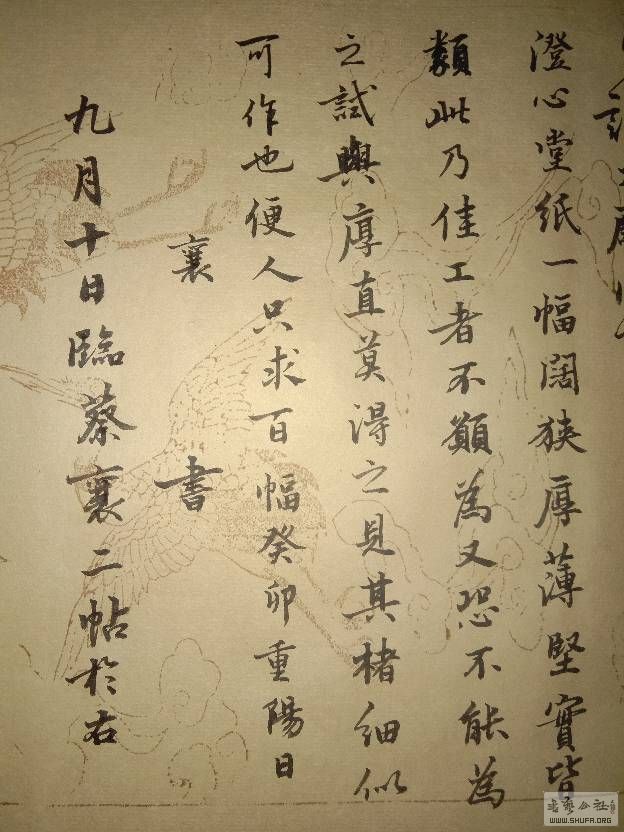 澄心堂紙一幅闊狹厚薄堅實皆
類此乃佳工者不願為又恐不能為
之試與厚直莫得之見其楮細似
可作也便人只求百幅癸卯重陽日
襄書
九月十日臨蔡襄二帖於右
WWW.SHUFA.ORG